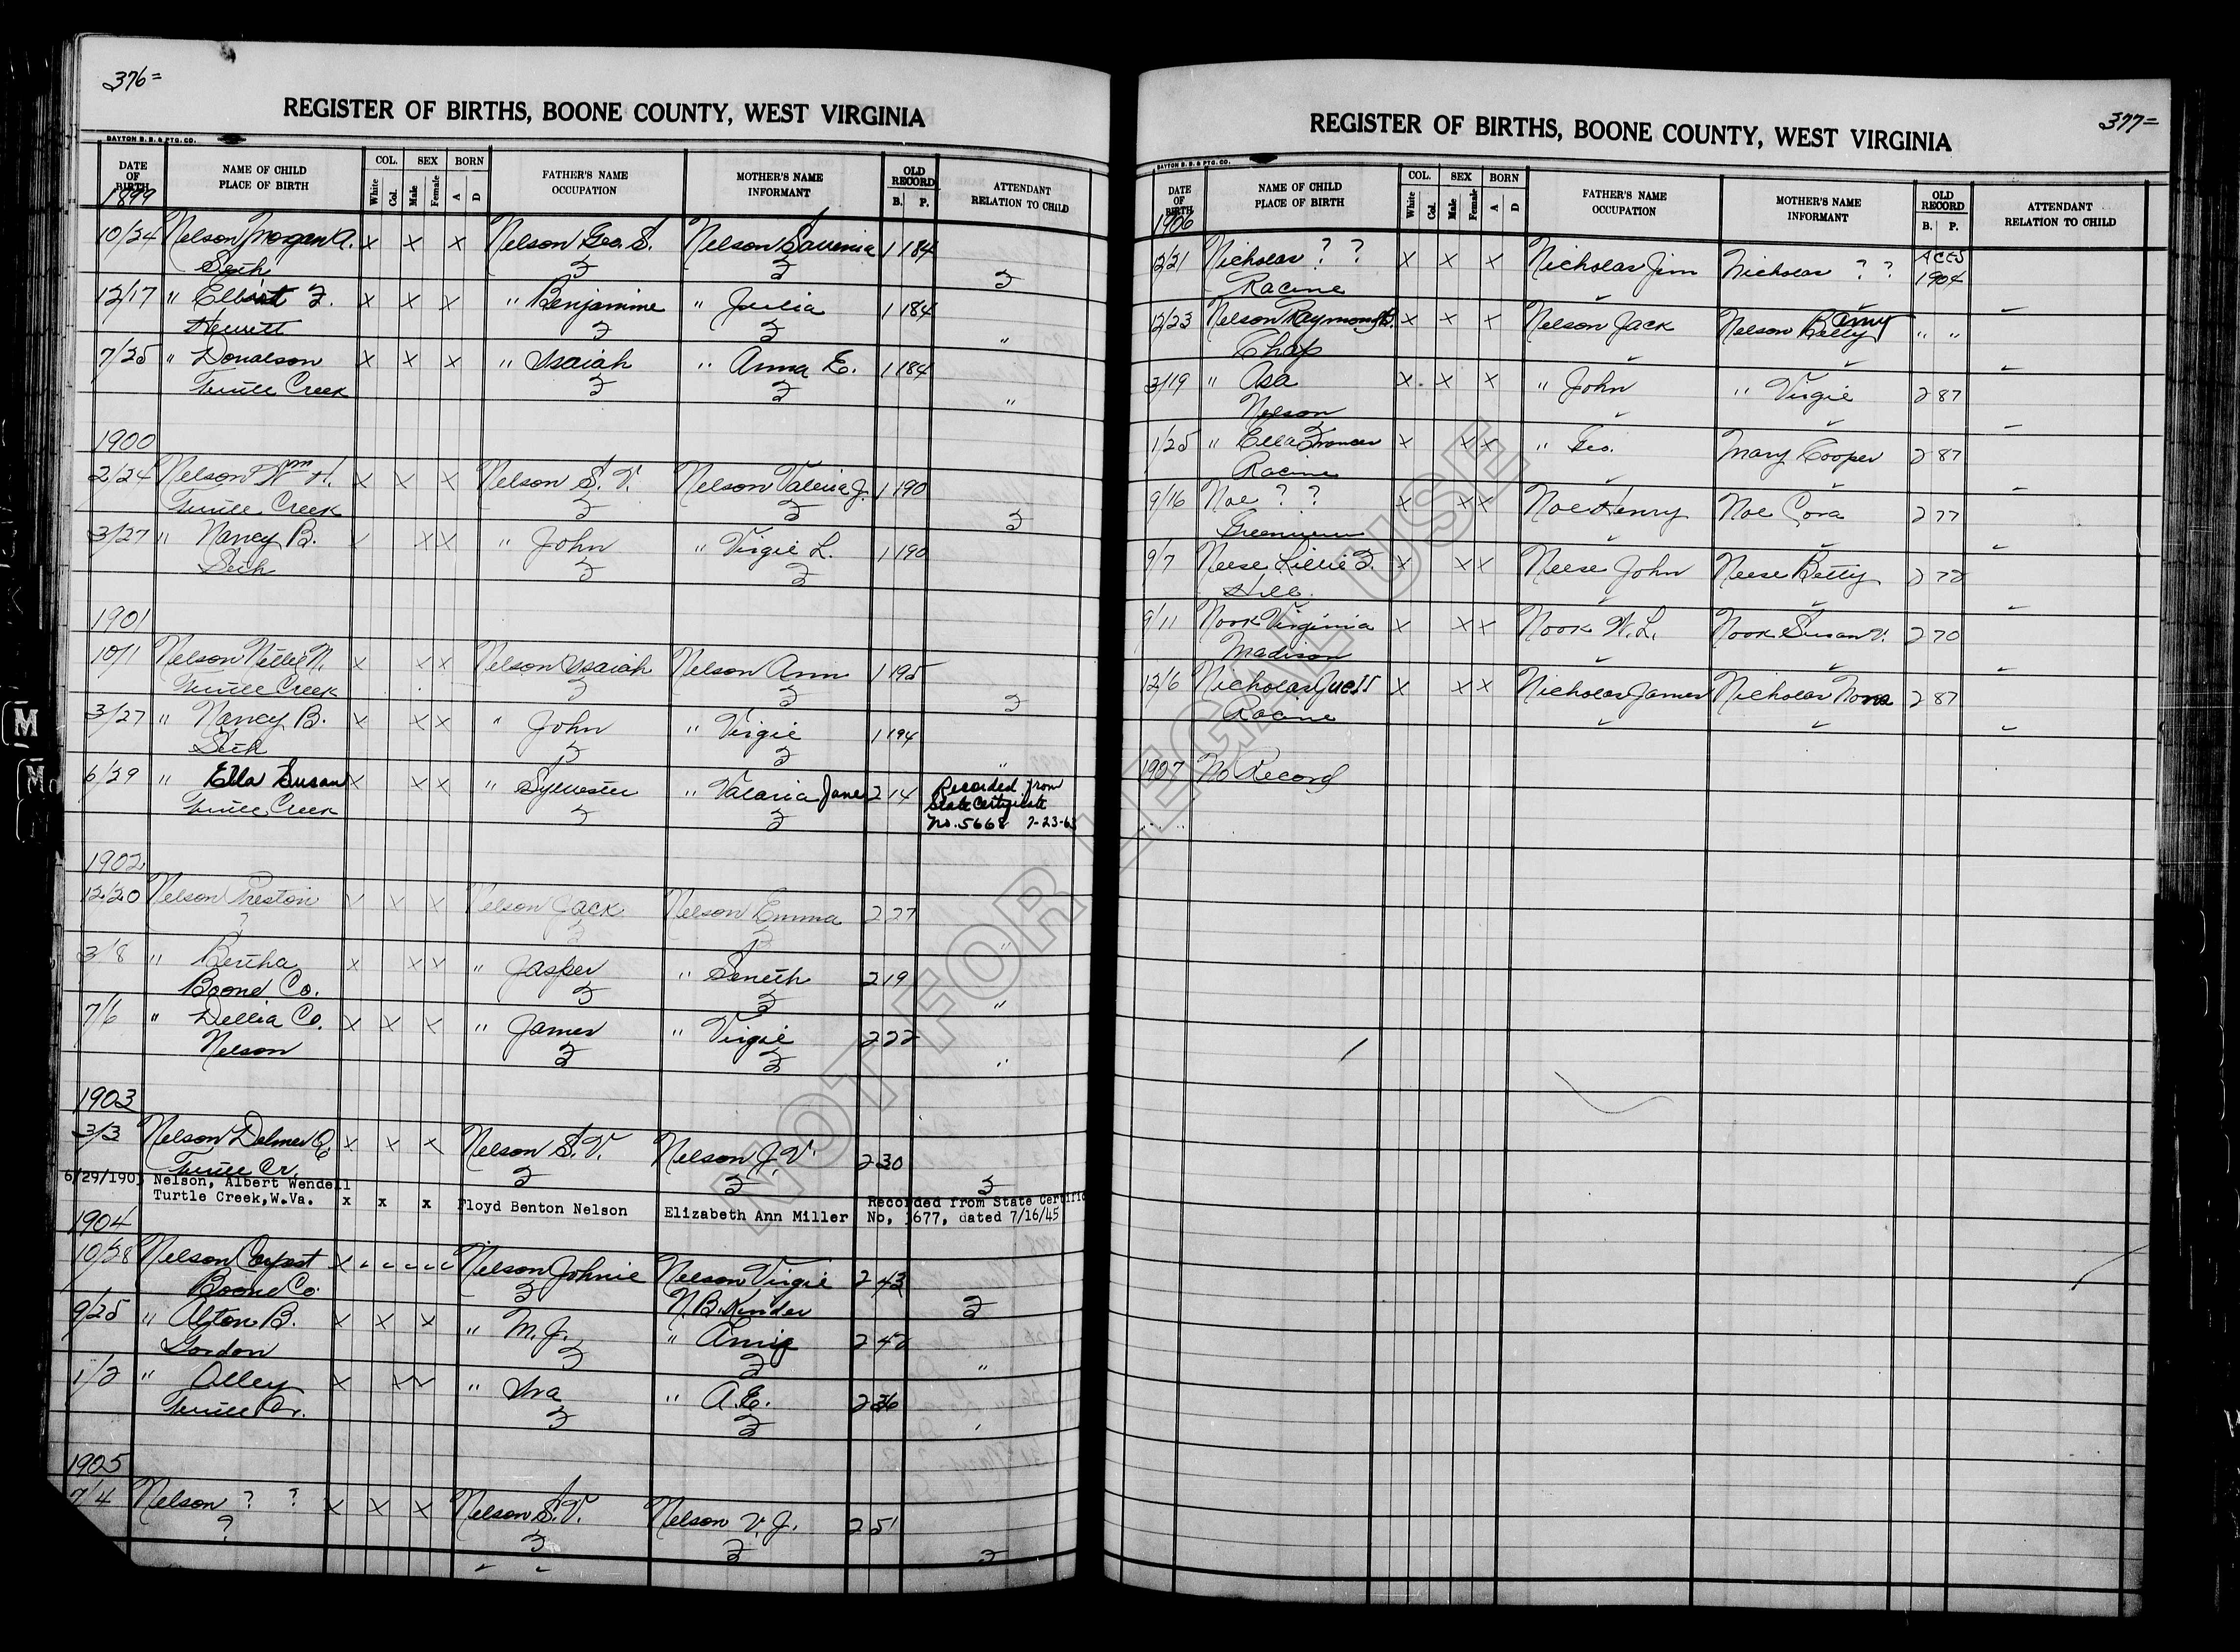 376=
REGISTER OF BIRTHS, BOONE COUNTY, WEST VIRGINIA
DAYTON B. B. & PTG. CO.
DATE OF BIRTH NAME OF CHILD PLACE OF BIRTH COL. White Col. SEX Male Female BORN A D FATHER'S NAME OCCUPATION MOTHER'S NAME INFORMANT OLD RECORD B. P. ATTENDANT RELATION TO CHILD
1899
10/24 Nelson Morgan A. x x x Nelson Geo. S. Nelson 1 184
Seth ? ? ?
12/17 " Elbert ?. x x x " Benjamine " Julia 1 184
Hewett ? ? "
7/25 " Donalson x x x " Isaiah " Anna E. 1 184
Turtle Creek ? ? "
1900
2/24 Nelson Wm H. x x x Nelson S. V. Nelson Valeria J. 1 190
Turtle Creek ? ? ?
3/27 " Nancy B. x x x " John " Virgie L. 1 190
Seth ? ?
1901
10/1 Nelson Nellie N. x x x Nelson Isaiah Nelson Ann 1 195
Turtle Creek ? ? ?
3/27 " Nancy B. x x x " John " Virgie 1 194
Seth ? ? "
6/29 " Ella Susan x x x " Sylvester " Valaria Jane 2 14 Recorded from
Turtle Creek ? ? State Certificate
No. 5668 7-23-63
1902
12/20 Nelson Preston x x x Nelson Jack Nelson Emma 2 27
? ? ? "
3/8 " Bertha x x x " Jasper " Seneth 2 19
Boone Co. ? ? "
7/6 " Dellia Co. x x x " James " Virgie 2 22
Nelson ? ? "
1903
3/3 Nelson Delmer x x x Nelson S. V. Nelson J. V. 2 30
Turtle Cr. ? ? ?
6/29/1903 Nelson, Albert Wendell
Turtle Creek, W.Va. x x x Floyd Benton Nelson Elizabeth Ann Miller Recorded from State Certific
No, 1677, dated 7/16/45
1904
10/28 Nelson x " " " " " Nelson Johnie Nelson Virgie 2 43
Boone Co. ? N. B. Kinder ?
9/25 " Alton B. x x x " M. J. " Annie 2 42
Gordon ? ? "
1/2 " Alley x x x " Ira " A. E. 2 36
Turtle Cr. ? ? "
1905
7/4 Nelson ? ? x x x Nelson S. V. Nelson V. J. 2 51
? ? ? ?
377=
REGISTER OF BIRTHS, BOONE COUNTY, WEST VIRGINIA
DAYTON B. B. & PTG. CO.
DATE OF BIRTH NAME OF CHILD PLACE OF BIRTH COL. White Col. SEX Male Female BORN A D FATHER'S NAME OCCUPATION MOTHER'S NAME INFORMANT OLD RECORD B. P. ATTENDANT RELATION TO CHILD
1906
12/21 Nicholas ? ? x x x Nicholas Jim Nicholas ? ?
Racine 1904
12/23 Nelson Raymond x x x Nelson Jack Nelson Betty " "
Chap
3/19 " Asa x x x " John " Virgie 2 87
Nelson
1/25 " Ella Frances x x x " Geo. Mary Cooper 2 87
Racine
9/16 Noe ? ? x x x Noe Henry Noe Cora 2 77
Greenview
9/7 Neese Lillie ?. x x x Neese John Neese Betty 2 72
Hill
9/11 Nook Virginia x x x Nook W. L. Nook Susan V. 2 70
Madison
12/6 Nicholas x x x Nicholas James Nicholas Nona 2 87
Racine
1907 No Record
NOT FOR LEGAL USE